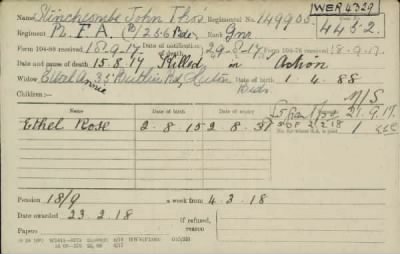 WER 4329
Name Stinchcombe John Thos Regimental No. 149905
Regiment R. F. A. (B/256 Bde) Rank Gnr 445-2
Form 104-88 received 18.9.17. Date of notification of death 29-8-17 Form 104-76 received 18-9-17.
Date and cause of death 15.8.17 Killed in Action
Widow Ethel Annie 35 Butlin Rd, Luton Beds. Date of birth 1.4.88
Children:— M/S
Date of birth Date of expiry
21.9.17.
Ethel Rose 2-8-15 2.8.31 1
Pension 18/9 a week from 4.3.18
Date awarded 23.2.18 If refused, reason
Papers